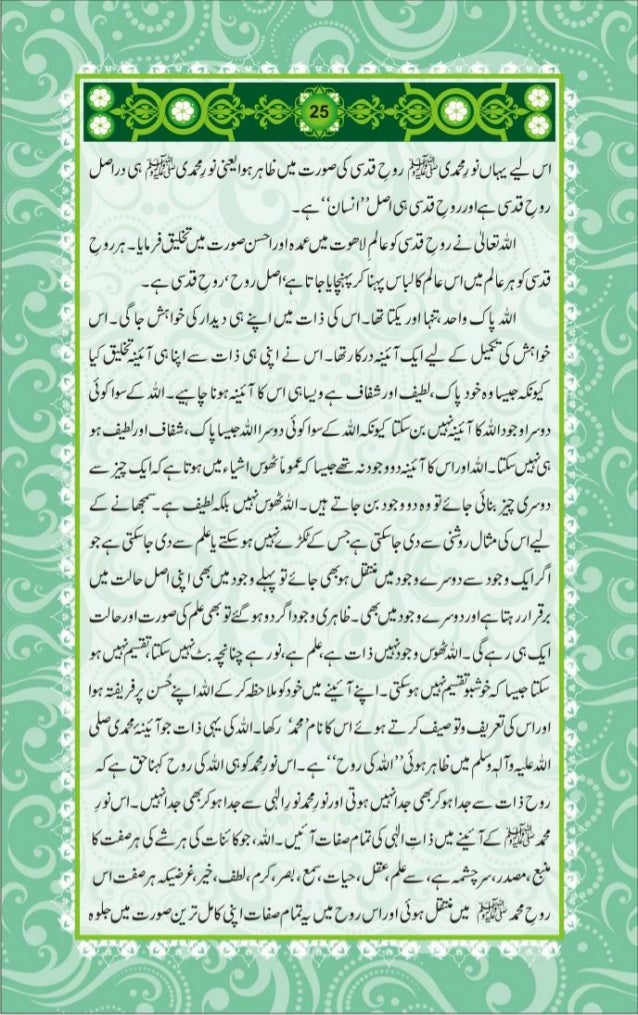 25
اس لیے یہاں نورِ محمدی ﷺ روحِ قدسی کی صورت میں ظاہر ہوا یعنی نورِ محمدی ﷺ ہی دراصل
روحِ قدسی ہے اور روحِ قدسی ہی اصل ’’انسان‘‘ ہے۔
اللہ تعالیٰ نے روحِ قدسی کو عالمِ لاھوت میں عمدہ اور احسن صورت میں تخلیق فرمایا۔ ہر روحِ
قدسی کو ہر عالم میں اس عالم کا لباس پہنا کر پہنچایا جاتا ہے‘ اصل روح‘ روحِ قدسی ہے۔
اللہ پاک واحد، تنہا اور یکتا تھا۔ اس کی ذات میں اپنے ہی دیدار کی خواہش جاگی۔ اس
خواہش کی تکمیل کے لیے ایک آئینہ درکار تھا۔ اس نے اپنی ہی ذات سے اپنا ہی آئینہ تخلیق کیا
کیونکہ جیسا وہ خود پاک، لطیف اور شفاف ہے ویسا ہی اس کا آئینہ ہونا چاہیے۔ اللہ کے سوا کوئی
دوسرا وجود اللہ کا آئینہ نہیں بن سکتا کیونکہ اللہ کے سوا کوئی دوسرا اللہ جیسا پاک، شفاف اور لطیف ہو
ہی نہیں سکتا۔ اللہ اور اس کا آئینہ دو وجود نہ تھے جیسا کہ عموماً ٹھوس اشیاء میں ہوتا ہے کہ ایک چیز سے
دوسری چیز بنائی جائے تو وہ دو وجود بن جاتے ہیں۔ اللہ ٹھوس نہیں بلکہ لطیف ہے۔ سمجھانے کے
لیے اس کی مثال روشنی سے دی جاسکتی ہے جس کے ٹکڑے نہیں ہو سکتے یا علم سے دی جاسکتی ہے جو
اگر ایک وجود سے دوسرے وجود میں منتقل ہو بھی جائے تو پہلے وجود میں بھی اپنی اصل حالت میں
برقرار رہتا ہے اور دوسرے وجود میں بھی۔ ظاہری وجود اگر دو ہو گئے تو بھی علم کی صورت اور حالت
ایک ہی رہے گی۔ اللہ ٹھوس وجود نہیں ذات ہے، علم ہے، نور ہے چنانچہ بٹ نہیں سکتا، تقسیم نہیں ہو
سکتا جیسا کہ خوشبو تقسیم نہیں ہو سکتی۔ اپنے آئینے میں خود کو ملاحظہ کر کے اللہ اپنے حُسن پر فریفتہ ہوا
اور اس کی تعریف و توصیف کرتے ہوئے اس کا نام محمدؐ رکھا۔ اللہ کی یہی ذات جو آئینۂ محمدی صلی
اللہ علیہ وآلہٖ وسلم میں ظاہر ہوئی ’’اللہ کی روح‘‘ ہے۔ اس نورِ محمد کو ہی اللہ کی روح کہنا حق ہے کہ
روح ذات سے جدا ہو کر بھی جدا نہیں ہوتی اور نورِ محمد نورِ الٰہی سے جدا ہو کر بھی جدا نہیں۔ اس نورِ
محمد ﷺ کے آئینے میں ذاتِ الٰہی کی تمام صفات آئیں۔ اللہ، جو کائنات کی ہر شے کی ہر صفت کا
منبع، مصدر، سرچشمہ ہے، سے علم، عقل، حیات، سمع، بصر، کرم، لطف، خیر، غرضیکہ ہر صفت اس
روحِ محمد ﷺ میں منتقل ہوئی اور اس روح میں یہ تمام صفات اپنی کامل ترین صورت میں جلوہ